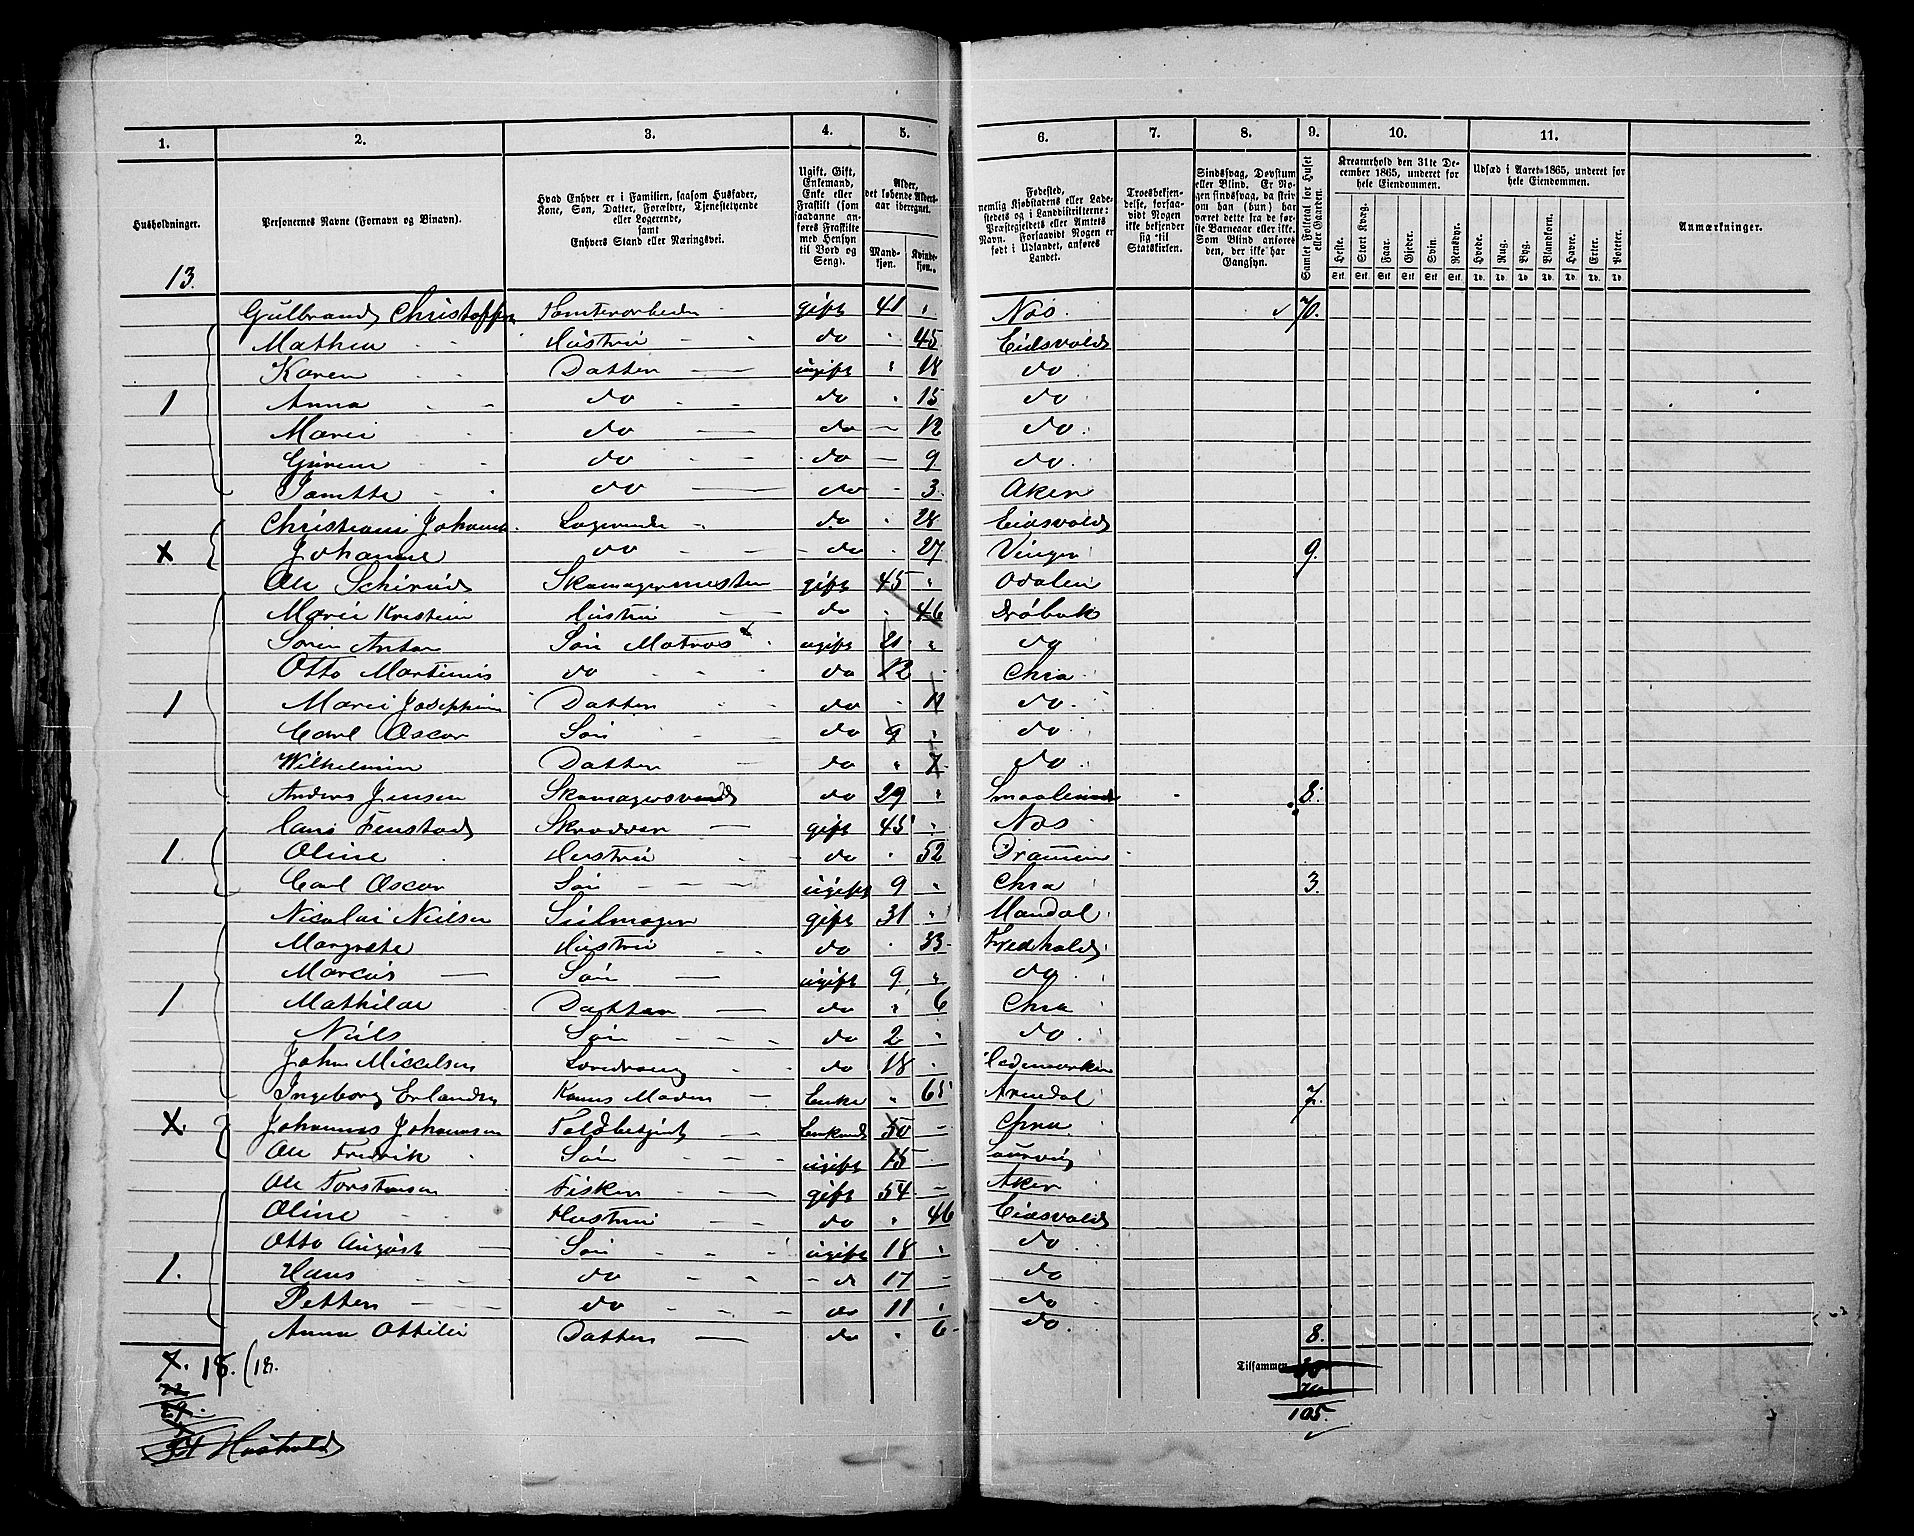 1. 2. 3. 4. 5. 6. 7. 8. 9. 10. 11.
Husholdninger.
Personernes Navne (Fornavn og Binavn).
Hvad Enhver er i Familien, saasom Husfader, Kone, Søn, Datter, Forældre, Tjenestetyende eller Logerende, samt Enhvers Stand eller Næringsvei.
Ugift, Gift, Enkemand, Enke eller Fraskilt (som saadanne anføres Fraskilte med Hensyn til Bord og Seng).
Alder, det løbende Aldersaar iberegnet.
Mandkjøn. Kvindekjøn.
Fødested, nemlig Kjøbstadens eller Ladestedets og i Landdistrikterne: Præstegjeldets eller Amtets Navn. Forsaavidt Nogen er født i Udlandet, anføres Landet.
Troesbekjendelse, forsaavidt Nogen ikke bekjender sig til Statskirken.
Sindssvag, Døvstum eller Blind. Er Nogen sindssvag, da skriv om han (hun) har været dette fra de første Barneaar eller ikke. Som Blind anføres den, der ikke har Gangsyn.
Samlet Folketal for Huset eller Gaarden.
Kreaturhold den 31te December 1865, underet for hele Eiendommen.
Heste. Stort Kvæg. Faar. Gjeder. Svin. Rensdyr.
Udsæd i Aaret 1865, underet for hele Eiendommen.
Hvede. Rug. Byg. Blandkorn. Havre. Erter. Poteter.
Anmærkninger.
13.
Gulbrand Christoffer Tomterarbeider gift 41 " Næs. 70.
Mathea Hustru do 45 Eidsvold
Karen Datter ugift " 18 do
1 Anna do do 15 do
Marie do do 12 do
Gurine do do 9 do
Janette do do 3 Aker
Christiane Johans. Logerende do 28 Eidsvold
X Johanne do do 27 Vinger 9.
Ole Schirud Skomagermester gift 45 " Odalen
Marie Kristine Hustru do 46 Drøbak
Søren Anton Søn Matros ugift 21 " do
Otto Martinius do do 12 Chra
1 Marie Josephine Datter do 11 do
Carl Oscar Søn do 9 do
Wilhelmine Datter do " 7 do
Anders Jensen Skomagersvend do 29 " Smaalenene 8.
Hans Fenstad Skrædder gift 45 Næs
1. Oline Hustru do 52 Drammen
Carl Oscar Søn ugift 9 " Chra 3.
Nicolai Nielsen Seilmager gift 31 " Mandal
Margrete Hustru do 33 Fredhald
Marcus Søn ugift 9 " do
1 Mathilde Datter do " 6 Chra
Niels Søn do 2 " do
Johan Mickelsen Læredreng do 18 Hedemarken
Ingeborg Erlandsen Kones Moder Enke " 65 Arendal 7.
X. Johannes Johannesen Toldbetjent Enkemd 50 Chra
Ole Fredrik Søn ugift 15 Laurvig
Ole Torstensen Fisker gift 54 Aker
Oline Hustru do " 46 Eidsvold
Otto August Søn ugift 18 " do
1. Hans do do 17 do
Petter do do 11 " do
Anna Ottilie Datter do " 6 do 8.
7. 18. (18.
Tilsammen
105.
Hushold